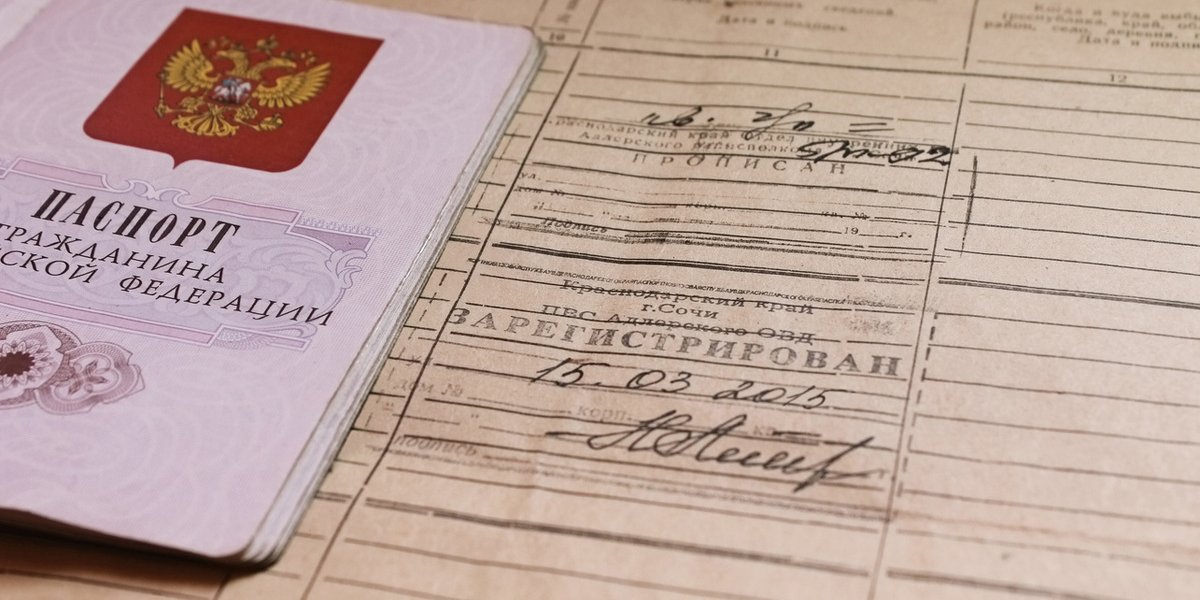 ПАСПОРТ
ГРАЖДАНИНА
СКОЙ ФЕДЕРАЦИИ
10
сведений
Дата и подпись
11
Когда и куда выб
(республика, край, об
район, село, деревня, г
Дата и подпи
12
Краснодарский край Отдел
Адлерского
ПРОПИСАН
ул.
дом №
корп. кв. №
" " 19 г.
Подпись
Краснодарский край
г.Сочи
ПВС Адлерского ОВД
ЗАРЕГИСТРИРОВАН
15.03 2015
дом № корп. кв
подпись